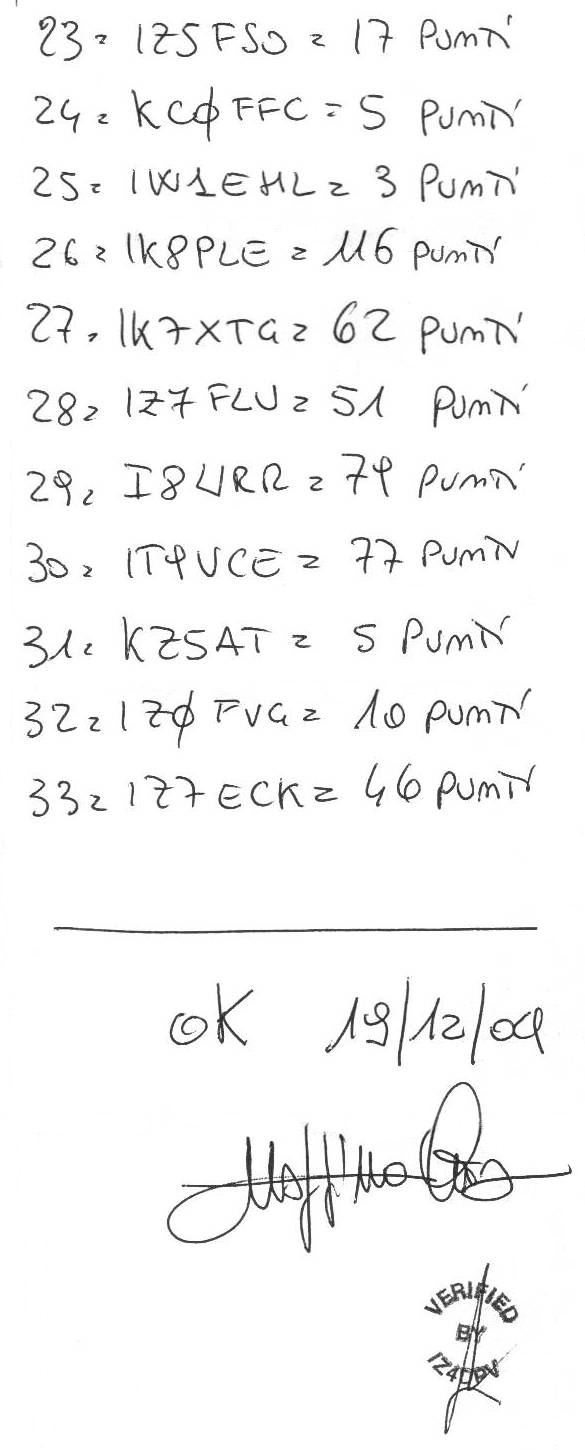 23= IZ5FSO = 17 PUNTI
24= KCØFFC = 5 PUNTI
25= IW1EHL = 3 PUNTI
26= IK8PLE = 116 PUNTI
27= IK7XTG = 62 PUNTI
28= IZ7FLU = 51 PUNTI
29= I8URR = 79 PUNTI
30= IT9VCE = 77 PUNTI
31= KZ5AT = 5 PUNTI
32= IZØFVG = 10 PUNTI
33= IZ7ECK = 46 PUNTI
OK 19/12/09
VERIFIED
BY
IZ4DPV